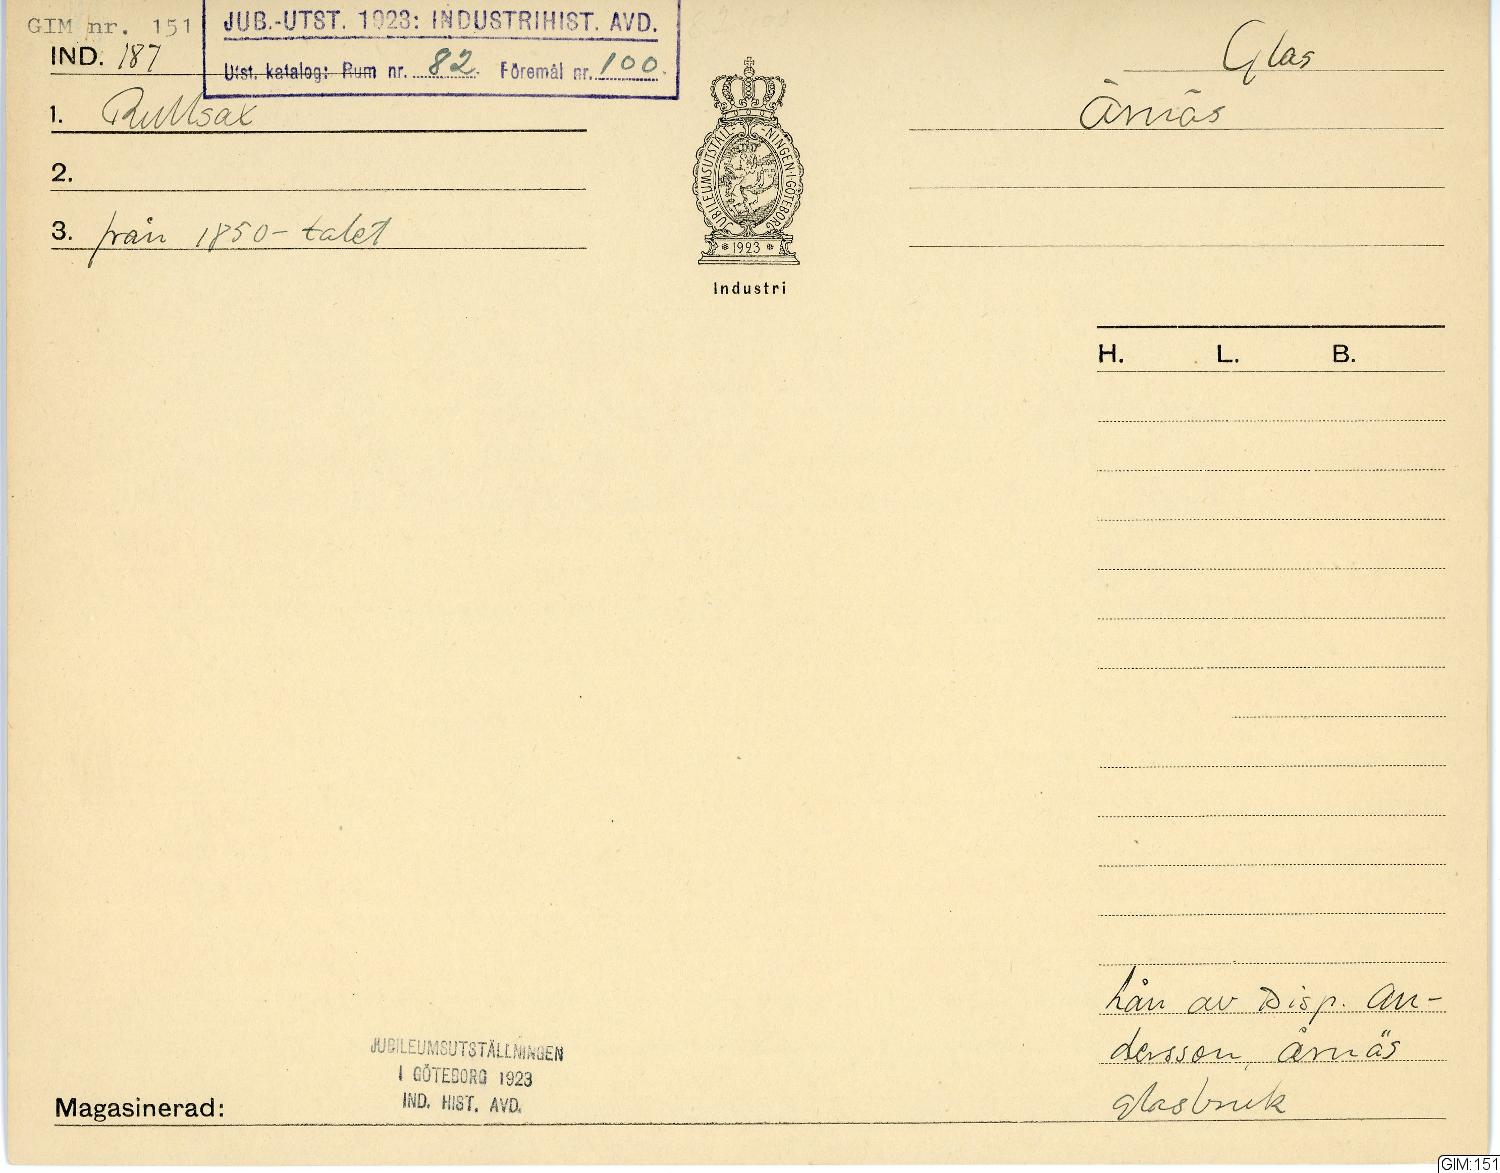 GIM nr. 151
JUB.-UTST. 1923: INDUSTRIHIST. AVD.
IND. 187
Utst. katalog: Rum nr. 82. Föremål nr. 100.
Glas
1. Rullsax
Årnäs
2.
3. från 1850-talet
JUBILEUMSUTSTÄLLNINGEN I GÖTEBORG
* 1923 *
Industri
H. L. B.
Lån av Disp. An-
dersson, Årnäs
glasbruk
JUBILEUMSUTSTÄLLNINGEN
I GÖTEBORG 1923
IND. HIST. AVD.
Magasinerad:
GIM:151